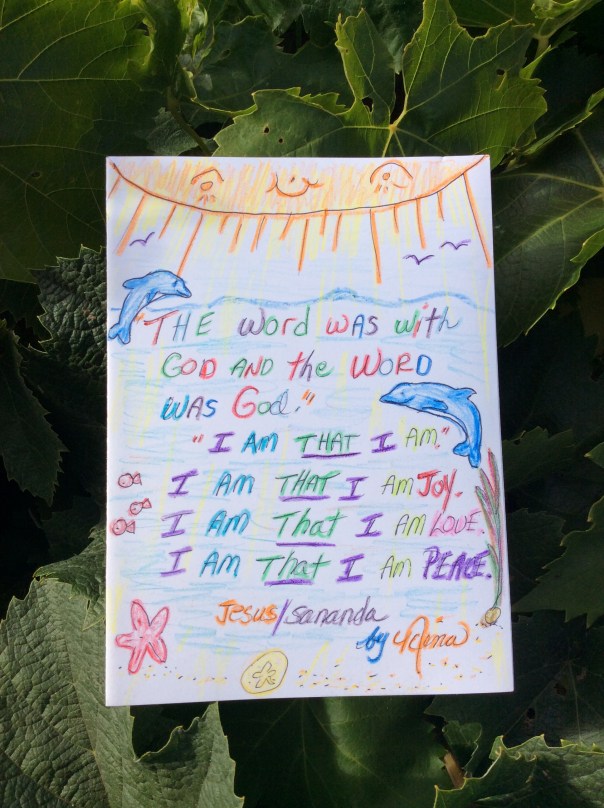 "THE Word WAS with
GOD AND the WORD
WAS God."
"I AM THAT I AM."
I AM THAT I AM JOY.
I AM That I AM LOVE.
I AM That I AM PEACE.
Jesus/Sananda
by